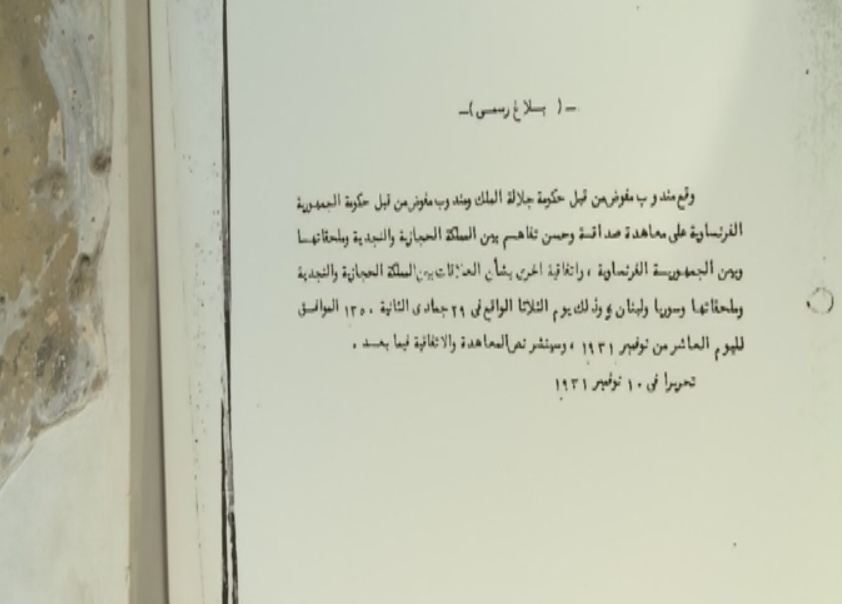 ـ( بـلاغ رسمى )ـ
وقع مندوب مفوض من قبل حكومة جلالة الملك ومندوب مفوض من قبل حكومة الجمهورية
الفرنساوية على معاهدة صداقة وحسن تفاهم بين المملكة الحجازية والنجدية وملحقاتهـا
وبين الجمهوريـة الفرنساوية ، واتفاقية اخرى بشأن العلاقات بين المملكة الحجازية والنجدية
وملحقاتهـا وسوريا ولبنان وذلك يوم الثلاثا الواقع فى ٢٩ جمادى الثانية ١٣٥٠ الموافـق
لليوم العاشر من نوفمبر ١٩٣١ ، وسينشر نص المعاهدة والاتفاقية فيما بعـد .
تحريرا فى ١٠ نوفمبر ١٩٣١